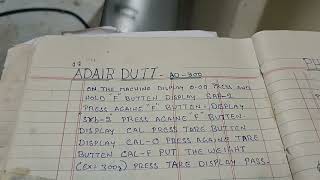 ADAIR DUTT - AD-300
ON THE MACHINE DISPLAY 0.00 PRESS AND
HOLD "F" BUTTEN DISPLAY CAP-2
PRESS AGAINE "F" BUTTEN. DISPLAY
PRESS AGAINE F" BUTTEN
DISPLAY CAL PRESS TARE BUTTEN
DISPLAY CAL-0 PRESS AGAINE TARE
BUTTEN CAL-F PUT THE WEIGHT
(EX: 300g) PRESS TARE DISPLAY PASS.